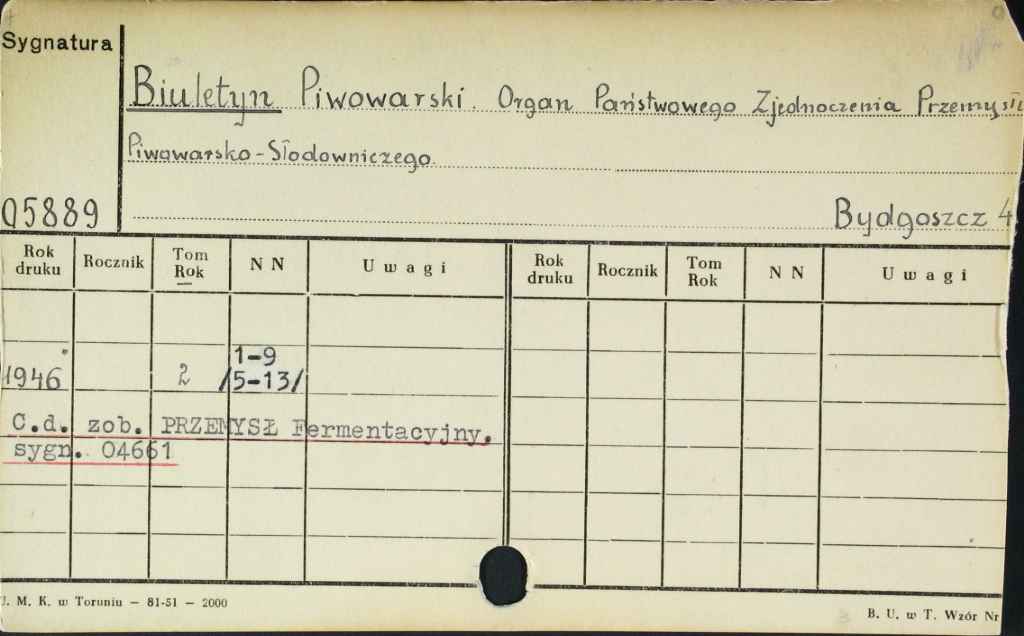 Sygnatura
Biuletyn Piwowarski. Organ Państwowego Zjednoczenia Przemysłu
Piwowarsko-Słodowniczego.
05889
Bydgoszcz 4
Rok druku Rocznik Tom Rok N N Uwagi Rok druku Rocznik Tom Rok N N Uwagi
1-9
1946 2 /5-13/
C.d. zob. PRZEMYSŁ Fermentacyjny.
sygn. 04661
J. M. K. w Toruniu — 81-51 — 2000
B. U. w T. Wzór Nr